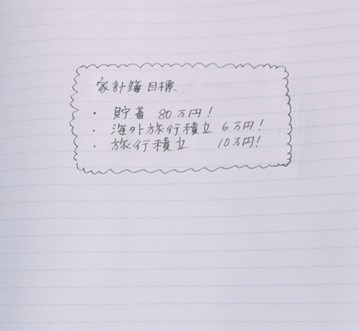 家計簿目標
・ 貯蓄 80万円!
・ 海外旅行積立 6万円!
・ 旅行積立 10万円!